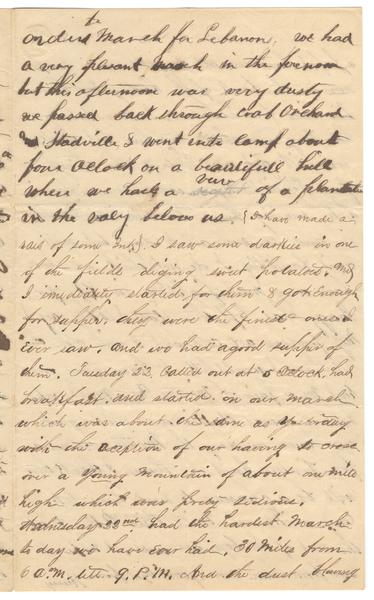 orders to March for Lebanon, we had
a very plesant march in the forenoon
but this afternoon was very dusty
we passed back through Crab Orchard
& Stadville & went into camp about
four Oclock on a beautifull hill
where we had a veu of a plantation
in the valy below us. (I have made a
rais of some ink). I saw some darkies in one
of the fields diging sweet potatoes. and
I imediately started for them & got enough
for supper. they were the finest ones I
ever saw. and we had a good supper of
them. Tuesday 22. Called out at 5 Oclock. had
breakfast. and started on our march
which was about the same as yesterday
with the exception of our having to cross
over a young mountain of about one mile
high which was prety tedious.
Wednesday 22nd had the hardest March
to day we have ever had. 30 Miles from
6 a.m. till 9. P.M. And the dust blowing